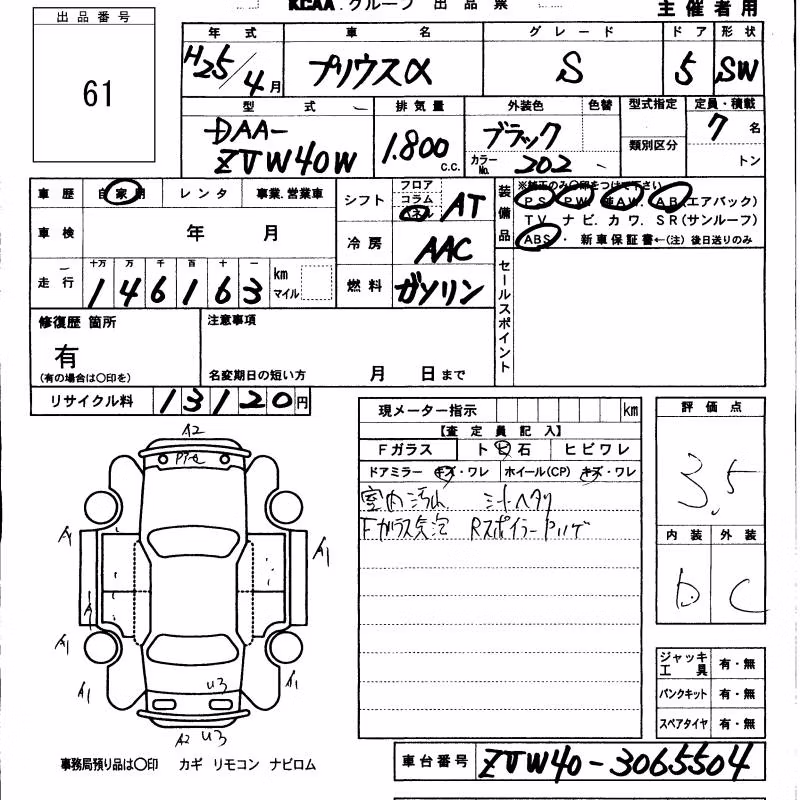 KCAA.グループ 出品票 主催者用
出品番号
61
年式 車名 グレード ドア 形状
H25/4月 プリウスα S 5 SW
型式 排気量 外装色 色替 型式指定 定員・積載
DAA-ZVW40W 1.800 C.C. ブラック 類別区分 7名
カラーNo. 202 トン
車歴 自家用 レンタ 事業.営業車
シフト フロア コラム パネル AT
装備品 ※純正のみ○印をつけて下さい
PS PW 純AW. AB(エアバック)
TV ナビ.カワ.SR(サンルーフ)
ABS・新車保証書←(注)後日送りのみ
車検 年 月
冷房 AAC
走行 十万 万 千 百 十 一
146163 km マイル
燃料 ガソリン
セールスポイント
修復歴 箇所
有
(有の場合は○印を)
注意事項
名変期日の短い方 月 日まで
リサイクル料 13120円
現メーター指示 km
【査定員記入】
Fガラス ト ビ 石 ヒビワレ
ドアミラー キズ・ワレ ホイール(CP) キズ・ワレ
室内汚れ シートヘタリ
Fガラス気泡 Rスポイラーハゲ
評価点
3.5
内装 外装
D C
A2
A1 A1
A1
A1 A1
A1 A1
U3
A2 U3
ジャッキ工具 有・無
パンクキット 有・無
スペアタイヤ 有・無
事務局預り品は○印 カギ リモコン ナビロム
車台番号 ZVW40-3065504